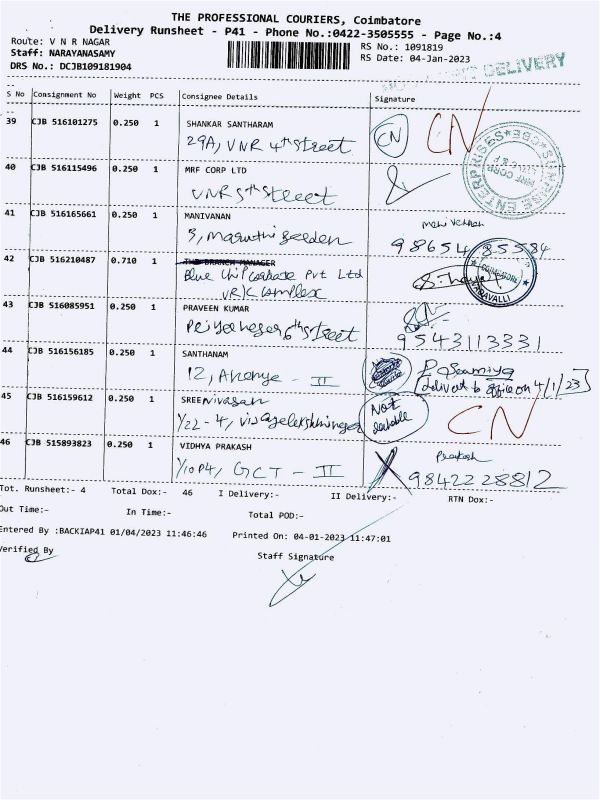 THE PROFESSIONAL COURIERS, Coimbatore
Delivery Runsheet - P41 - Phone No.:0422-3505555 - Page No.:4
Route: V N R NAGAR
RS No.: 1091819
Staff: NARAYANASAMY
RS Date: 04-Jan-2023
DRS No.: DCJB109181904
DELIVERY
S No Consignment No Weight PCS Consignee Details Signature
39 CJB 516101275 0.250 1 SHANKAR SANTHARAM
29A, VNR 4th Street CN CN
40 CJB 516115496 0.250 1 MRF CORP LTD
VNR 5th Street
SUNRISE ENTERPRISES * CBE *
MRF CORP
41 CJB 516165661 0.250 1 MANIVANAN
3, Maruthi 98654 35584
42 CJB 516210487 0.710 1 THE BRANCH MANAGER
Blue Chip Corporate Pvt Ltd
VRK Complex
43 CJB 516085951 0.250 1 PRAVEEN KUMAR
6th Street 9543113331
44 CJB 516156185 0.250 1 SANTHANAM
12, - II
delivered to office on 4/1/23
45 CJB 516159612 0.250 1 SREENivasan
1/22-4, Not CN
46 CJB 515893823 0.250 1 VIDHYA PRAKASH
Prakash
1/10P4, GCT - II X 9842228812
Tot. Runsheet:- 4 Total Dox:- 46 I Delivery:- II Delivery:- RTN Dox:-
Out Time:- In Time:- Total POD:-
Entered By :BACKIAP41 01/04/2023 11:46:46 Printed On: 04-01-2023 11:47:01
Verified By Staff Signature